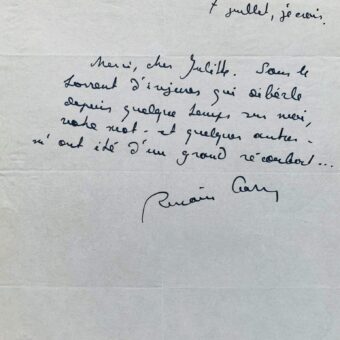 7 juillet, je crois.
Merci, cher Juliette. Sous le
torrent d'injures qui déferle
depuis quelque temps sur moi,
votre mot - et quelques autres -
m'ont été d'un grand réconfort...
Romain Gary